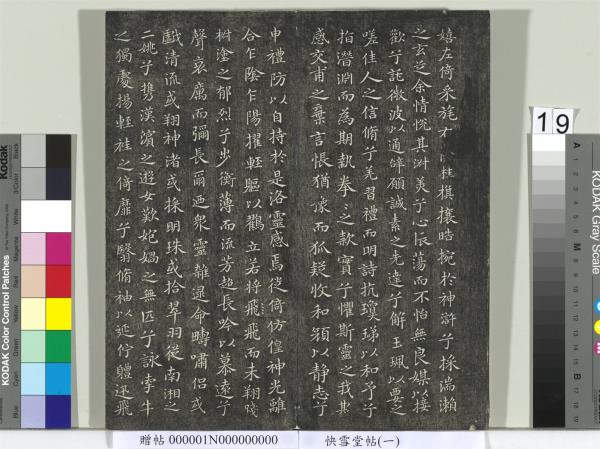 嬉左倚采旄右桂棋攘晧捥於神滸兮採湍瀨
之玄芝余情恱其淑美兮心振蕩而不怡無良媒以接
歡兮託微波以通辭願誠素之先達兮解玉珮以要之
嗟佳人之信脩兮羌習禮而明詩抗瓊珶以和予兮
指潛淵而為期執拳〻之款實兮懼斯靈之我欺
感交甫之棄言悵猶豫而狐疑收和顏以静志兮
申禮防以自持於是洛靈感焉徙倚仿偟神光離
合乍陰乍陽擢輕軀以鸖立若將飛飛而未翔踐
椒塗之郁烈兮步蘅薄而流芳超長吟以慕遠兮
聲哀厲而彌長爾迺衆靈雜遝命疇嘯侶或
戲清流或翔神渚或採明珠或拾翠羽從南湘之
二姚兮攜漢濱之遊女歎妃媧之無匹兮詠牽牛
之獨處揚輕袿之倚靡兮翳脩袖以延佇體迅飛
贈帖 000001N000000000 快雪堂帖(一)
19
KODAK Color Control Patches
Kodak
Blue
Cyan
Green
Yellow
Red
Magenta
White
3/Color
Black
KODAK Gray Scale
A
M
B